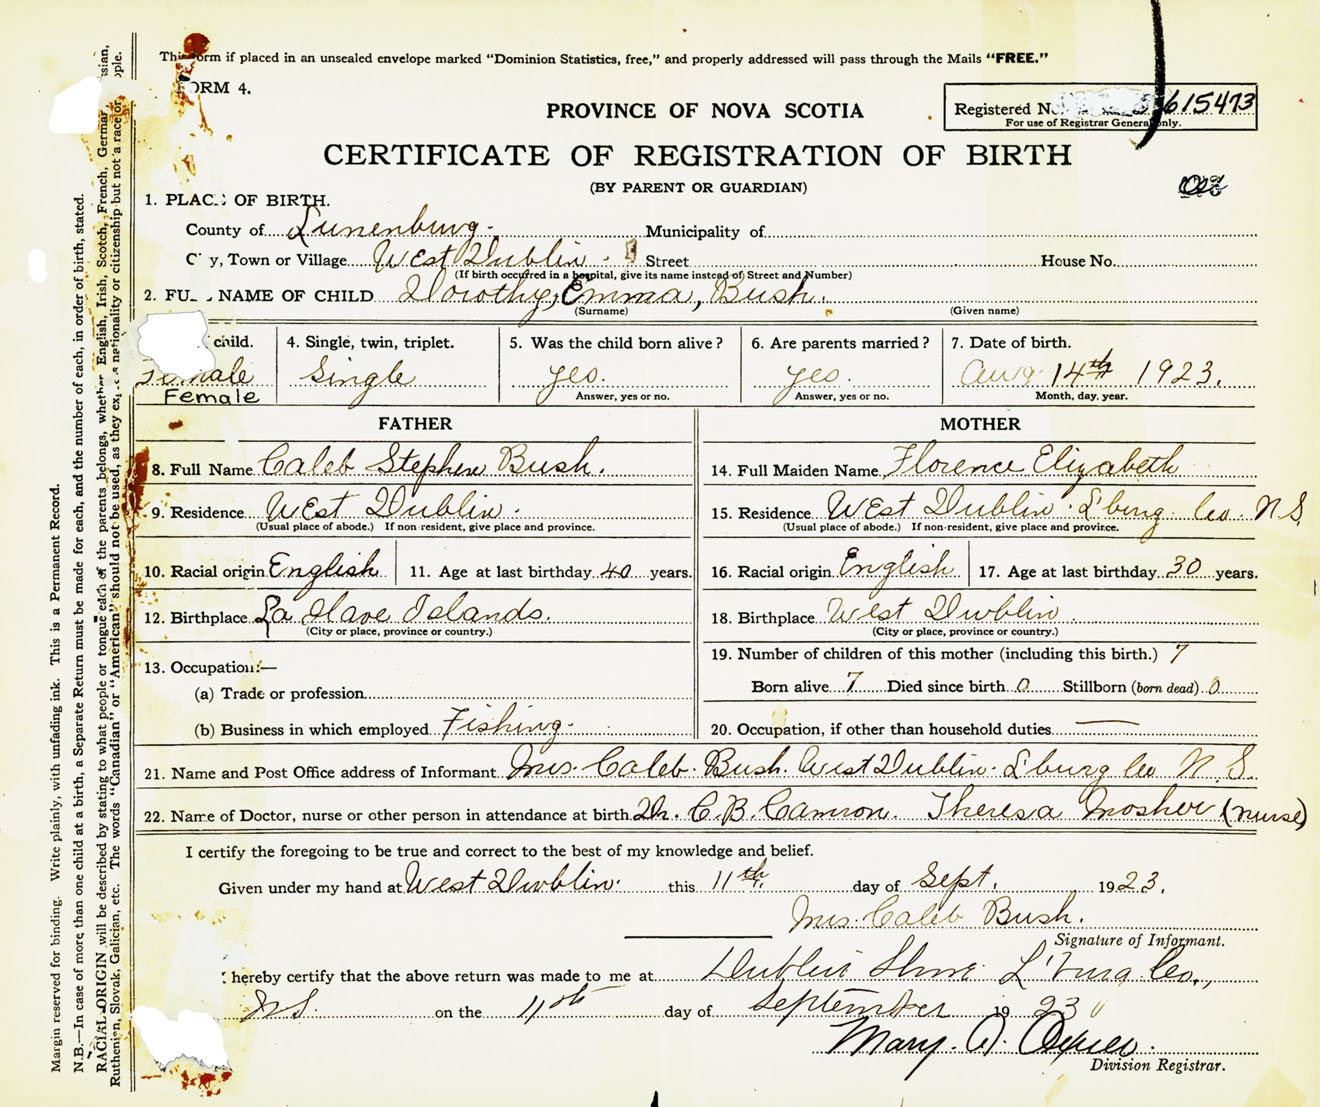 This form if placed in an unsealed envelope marked "Dominion Statistics, free," and properly addressed will pass through the Mails "FREE."
FORM 4.
PROVINCE OF NOVA SCOTIA
Registered No. 615473
For use of Registrar General only.
CERTIFICATE OF REGISTRATION OF BIRTH
(BY PARENT OR GUARDIAN)
1. PLACE OF BIRTH.
County of Lunenburg. Municipality of
City, Town or Village West Dublin. Street House No.
(If birth occurred in a hospital, give its name instead of Street and Number)
2. FULL NAME OF CHILD Dorothy, Emma, Bush.
(Surname) (Given name)
child. 4. Single, twin, triplet. 5. Was the child born alive? 6. Are parents married? 7. Date of birth.
Female Single yes. yes. Aug 14th 1923.
Female Answer, yes or no. Answer, yes or no. Month, day, year.
FATHER MOTHER
8. Full Name Caleb Stephen Bush. 14. Full Maiden Name Florence Elizabeth
9. Residence West Dublin. 15. Residence West Dublin. L'burg Co. N.S.
(Usual place of abode.) If non-resident, give place and province. (Usual place of abode.) If non-resident, give place and province.
10. Racial origin English 11. Age at last birthday 40 years. 16. Racial origin English 17. Age at last birthday 30 years.
12. Birthplace La Have Islands. 18. Birthplace West Dublin.
(City or place, province or country.) (City or place, province or country.)
13. Occupation:— 19. Number of children of this mother (including this birth.) 7
(a) Trade or profession Born alive 7 Died since birth 0 Stillborn (born dead) 0
(b) Business in which employed Fishing. 20. Occupation, if other than household duties —
21. Name and Post Office address of Informant Mrs. Caleb. Bush. West Dublin. L'burg Co N.S.
22. Name of Doctor, nurse or other person in attendance at birth Dr. C.B. Camron. Theresa Mosher (nurse)
I certify the foregoing to be true and correct to the best of my knowledge and belief.
Given under my hand at West Dublin. this 11th day of Sept. 1923.
Mrs. Caleb Bush.
Signature of Informant.
I hereby certify that the above return was made to me at Dublin Shore L'burg Co.,
N.S. on the 11th day of September 1923
Mary. A.
Division Registrar.
Margin reserved for binding. Write plainly, with unfading ink. This is a Permanent Record.
N.B.—In case of more than one child at a birth, a Separate Return must be made for each, and the number of each, in order of birth, stated.
RACIAL ORIGIN will be described by stating to what people or tongue each of the parents belongs, whether English, Irish, Scotch, French, German,
Ruthenian, Slovak, Galician, etc. The words "Canadian" or "American" should not be used, as they express nationality or citizenship but not a race or people.